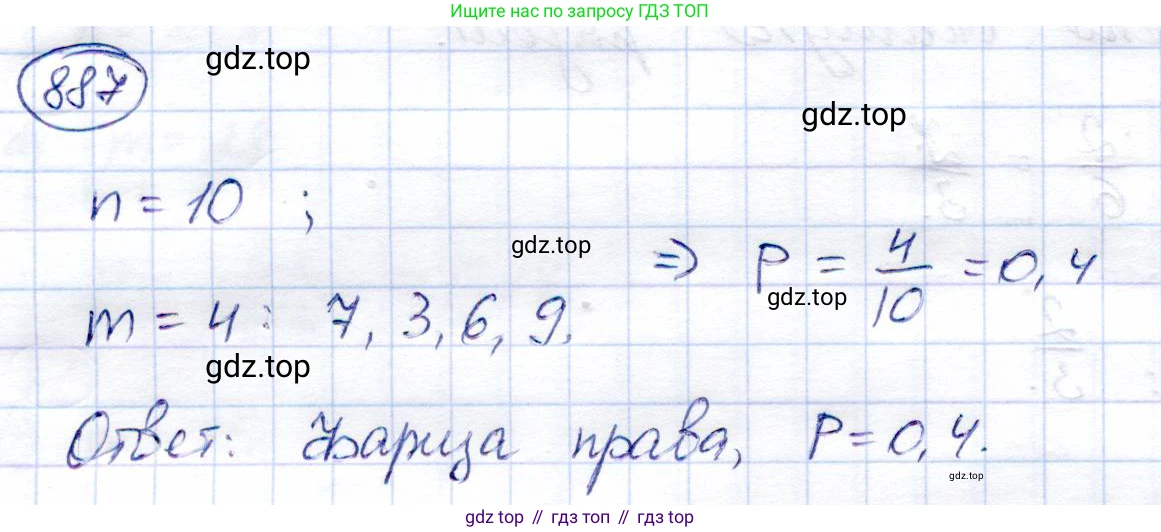 Ищите нас по запросу ГДЗ ТОП
887
gdz.top
gdz.top
n = 10 ;
gdz.top
m = 4 : 7, 3, 6, 9.
⇒ P = 4/10 = 0,4
gdz.top
gdz.top
Ответ: Чарица права, P = 0,4.
gdz.top
gdz top // гдз топ // gdz top